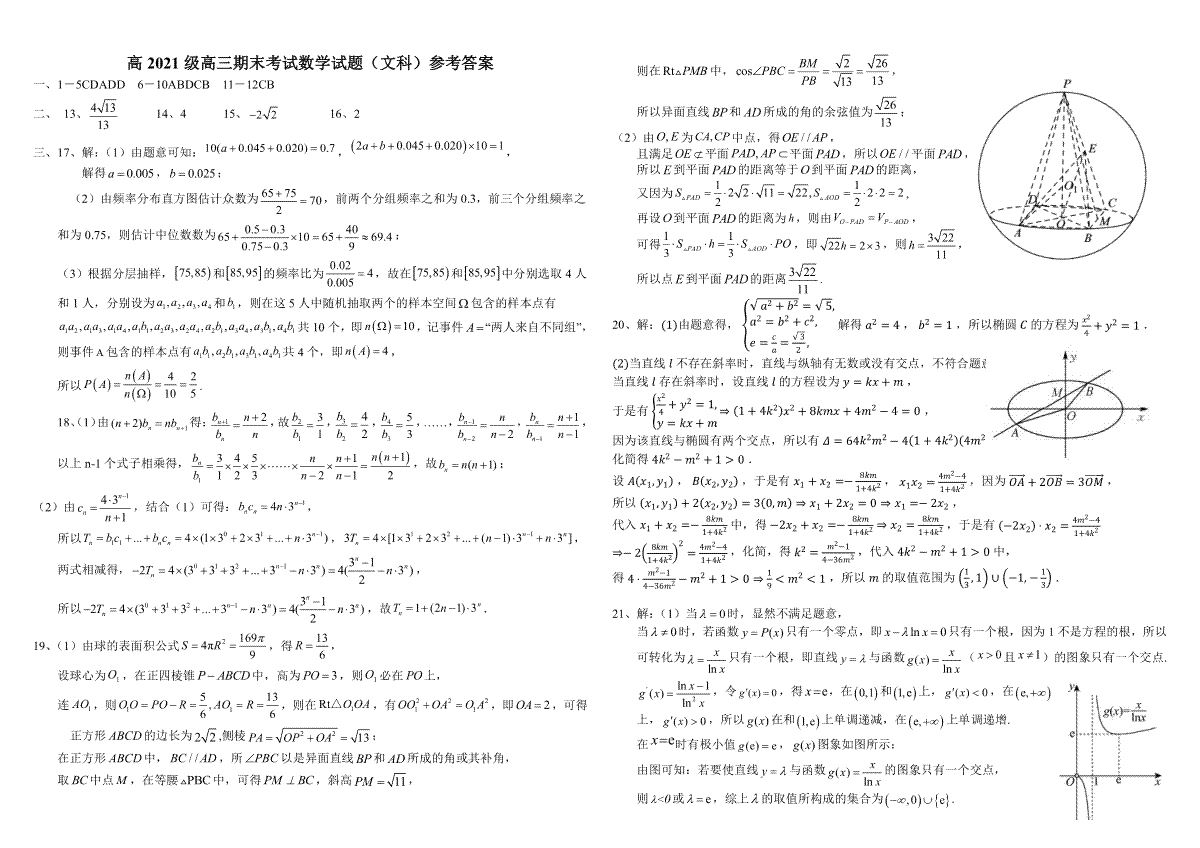 高 2021 级高三期末考试数学试题（文科）参考答案
一、1－5CDADD 6－10ABDCB 11－12CB
二、 13、4√13/13 14、4 15、−2√2 16、2
三、17、解：（1）由题意可知：10(a+0.045+0.020)=0.7，(2a+b+0.045+0.020)×10=1，
解得 a=0.005，b=0.025；
（2）由频率分布直方图估计众数为 (65+75)/2=70，前两个分组频率之和为 0.3，前三个分组频率之
和为 0.75，则估计中位数数为 65+(0.5−0.3)/(0.75−0.3)×10=65+40/9≈69.4；
（3）根据分层抽样，[75,85)和[85,95]的频率比为 0.02/0.005=4，故在[75,85)和[85,95]中分别选取 4 人
和 1 人，分别设为 a₁,a₂,a₃,a₄ 和 b₁，则在这 5 人中随机抽取两个的样本空间 Ω 包含的样本点有
a₁a₂,a₁a₃,a₁a₄,a₁b₁,a₂a₃,a₂a₄,a₂b₁,a₃a₄,a₃b₁,a₄b₁ 共 10 个，即 n(Ω)=10，记事件 A=“两人来自不同组”，
则事件 A 包含的样本点有 a₁b₁,a₂b₁,a₃b₁,a₄b₁ 共 4 个，即 n(A)=4，
所以 P(A)=n(A)/n(Ω)=4/10=2/5．
18、（1）由 (n+2)bₙ=nbₙ₊₁ 得：bₙ₊₁/bₙ=(n+2)/n，故 b₂/b₁=3/1，b₃/b₂=4/2，b₄/b₃=5/3，……，bₙ₋₁/bₙ₋₂=n/(n−2)，bₙ/bₙ₋₁=(n+1)/(n−1)，
以上 n-1 个式子相乘得，bₙ/b₁=3/1×4/2×5/3×……×n/(n−2)×(n+1)/(n−1)=n(n+1)/2，故 bₙ=n(n+1)；
（2）由 cₙ=4·3ⁿ⁻¹/(n+1)，结合（1）可得：bₙcₙ=4n·3ⁿ⁻¹，
所以 Tₙ=b₁c₁+...+bₙcₙ=4×(1×3⁰+2×3¹+...+n·3ⁿ⁻¹)，3Tₙ=4×[1×3¹+2×3²+...+(n−1)·3ⁿ⁻¹+n·3ⁿ]，
两式相减得，−2Tₙ=4×(3⁰+3¹+3²+...+3ⁿ⁻¹−n·3ⁿ)=4((3ⁿ−1)/2−n·3ⁿ)，
所以 −2Tₙ=4×(3⁰+3¹+3²+...+3ⁿ⁻¹−n·3ⁿ)=4((3ⁿ−1)/2−n·3ⁿ)，故 Tₙ=1+(2n−1)·3ⁿ．
19、（1）由球的表面积公式 S=4πR²=169π/9，得 R=13/6，
设球心为 O₁，在正四棱锥 P−ABCD 中，高为 PO=3，则 O₁ 必在 PO 上，
连 AO₁，则 O₁O=PO−R=5/6,AO₁=R=13/6，则在 Rt△O₁OA，有 OO₁²+OA²=O₁A²，即 OA=2，可得
正方形 ABCD 的边长为 2√2 ,侧棱 PA=√(OP²+OA²)=√13；
在正方形 ABCD 中，BC//AD，所∠PBC 以是异面直线 BP 和 AD 所成的角或其补角，
取 BC 中点 M，在等腰△PBC 中，可得 PM⊥BC，斜高 PM=√11，
则在 Rt△PMB 中，cos∠PBC=BM/PB=√2/√13=√26/13，
所以异面直线 BP 和 AD 所成的角的余弦值为 √26/13；
（2）由 O,E 为 CA,CP 中点，得 OE//AP，
且满足 OE⊄平面 PAD,AP⊂平面 PAD，所以 OE//平面 PAD，
所以 E 到平面 PAD 的距离等于 O 到平面 PAD 的距离，
又因为 S△PAD=1/2·2√2·√11=√22,S△AOD=1/2·2·2=2，
再设 O 到平面 PAD 的距离为 h，则由 V_O−PAD=V_P−AOD，
可得 1/3·S△PAD·h=1/3·S△AOD·PO，即 √22h=2×3，则 h=3√22/11，
所以点 E 到平面 PAD 的距离 3√22/11．
P
E
O₁
D
C
O
M
A
B
20、解：(1)由题意得，{√(a²+b²)=√5, a²=b²+c², e=c/a=√3/2, 解得 a²=4，b²=1，所以椭圆 C 的方程为 x²/4+y²=1．
(2)当直线 l 不存在斜率时，直线与纵轴有无数或没有交点，不符合题
当直线 l 存在斜率时，设直线 l 的方程设为 y=kx+m，
于是有 {x²/4+y²=1, y=kx+m ⇒(1+4k²)x²+8kmx+4m²−4=0，
因为该直线与椭圆有两个交点，所以有 Δ=64k²m²−4(1+4k²)(4m²
化简得 4k²−m²+1>0．
设 A(x₁,y₁)，B(x₂,y₂)，于是有 x₁+x₂=−8km/(1+4k²)，x₁x₂=(4m²−4)/(1+4k²)，因为 OA→+2OB→=3OM→，
所以 (x₁,y₁)+2(x₂,y₂)=3(0,m)⇒x₁+2x₂=0⇒x₁=−2x₂，
代入 x₁+x₂=−8km/(1+4k²) 中，得 −2x₂+x₂=−8km/(1+4k²)⇒x₂=8km/(1+4k²)，于是有 (−2x₂)·x₂=(4m²−4)/(1+4k²)
⇒−2(8km/(1+4k²))²=(4m²−4)/(1+4k²)，化简，得 k²=(m²−1)/(4−36m²)，代入 4k²−m²+1>0 中，
得 4·(m²−1)/(4−36m²)−m²+1>0⇒1/9<m²<1，所以 m 的取值范围为 (1/3,1)∪(−1,−1/3)．
y
M
B
O
x
A
21、解：（1）当 λ=0 时，显然不满足题意，
当 λ≠0 时，若函数 y=P(x) 只有一个零点，即 x−λln x=0 只有一个根，因为 1 不是方程的根，所以
可转化为 λ=x/ln x 只有一个根，即直线 y=λ 与函数 g(x)=x/ln x（x>0 且 x≠1）的图象只有一个交点.
g′(x)=(ln x−1)/ln²x，令 g′(x)=0，得 x=e，在 (0,1) 和 (1,e) 上，g′(x)<0，在 (e,+∞)
上，g′(x)>0，所以 g(x) 在和 (1,e) 上单调递减，在 (e,+∞) 上单调递增.
在 x=e 时有极小值 g(e)=e，g(x) 图象如图所示：
由图可知：若要使直线 y=λ 与函数 g(x)=x/ln x 的图象只有一个交点，
则 λ<0 或 λ=e，综上 λ 的取值所构成的集合为 (−∞,0)∪{e}．
y
g(x)=x/lnx
e
O
1
e
x